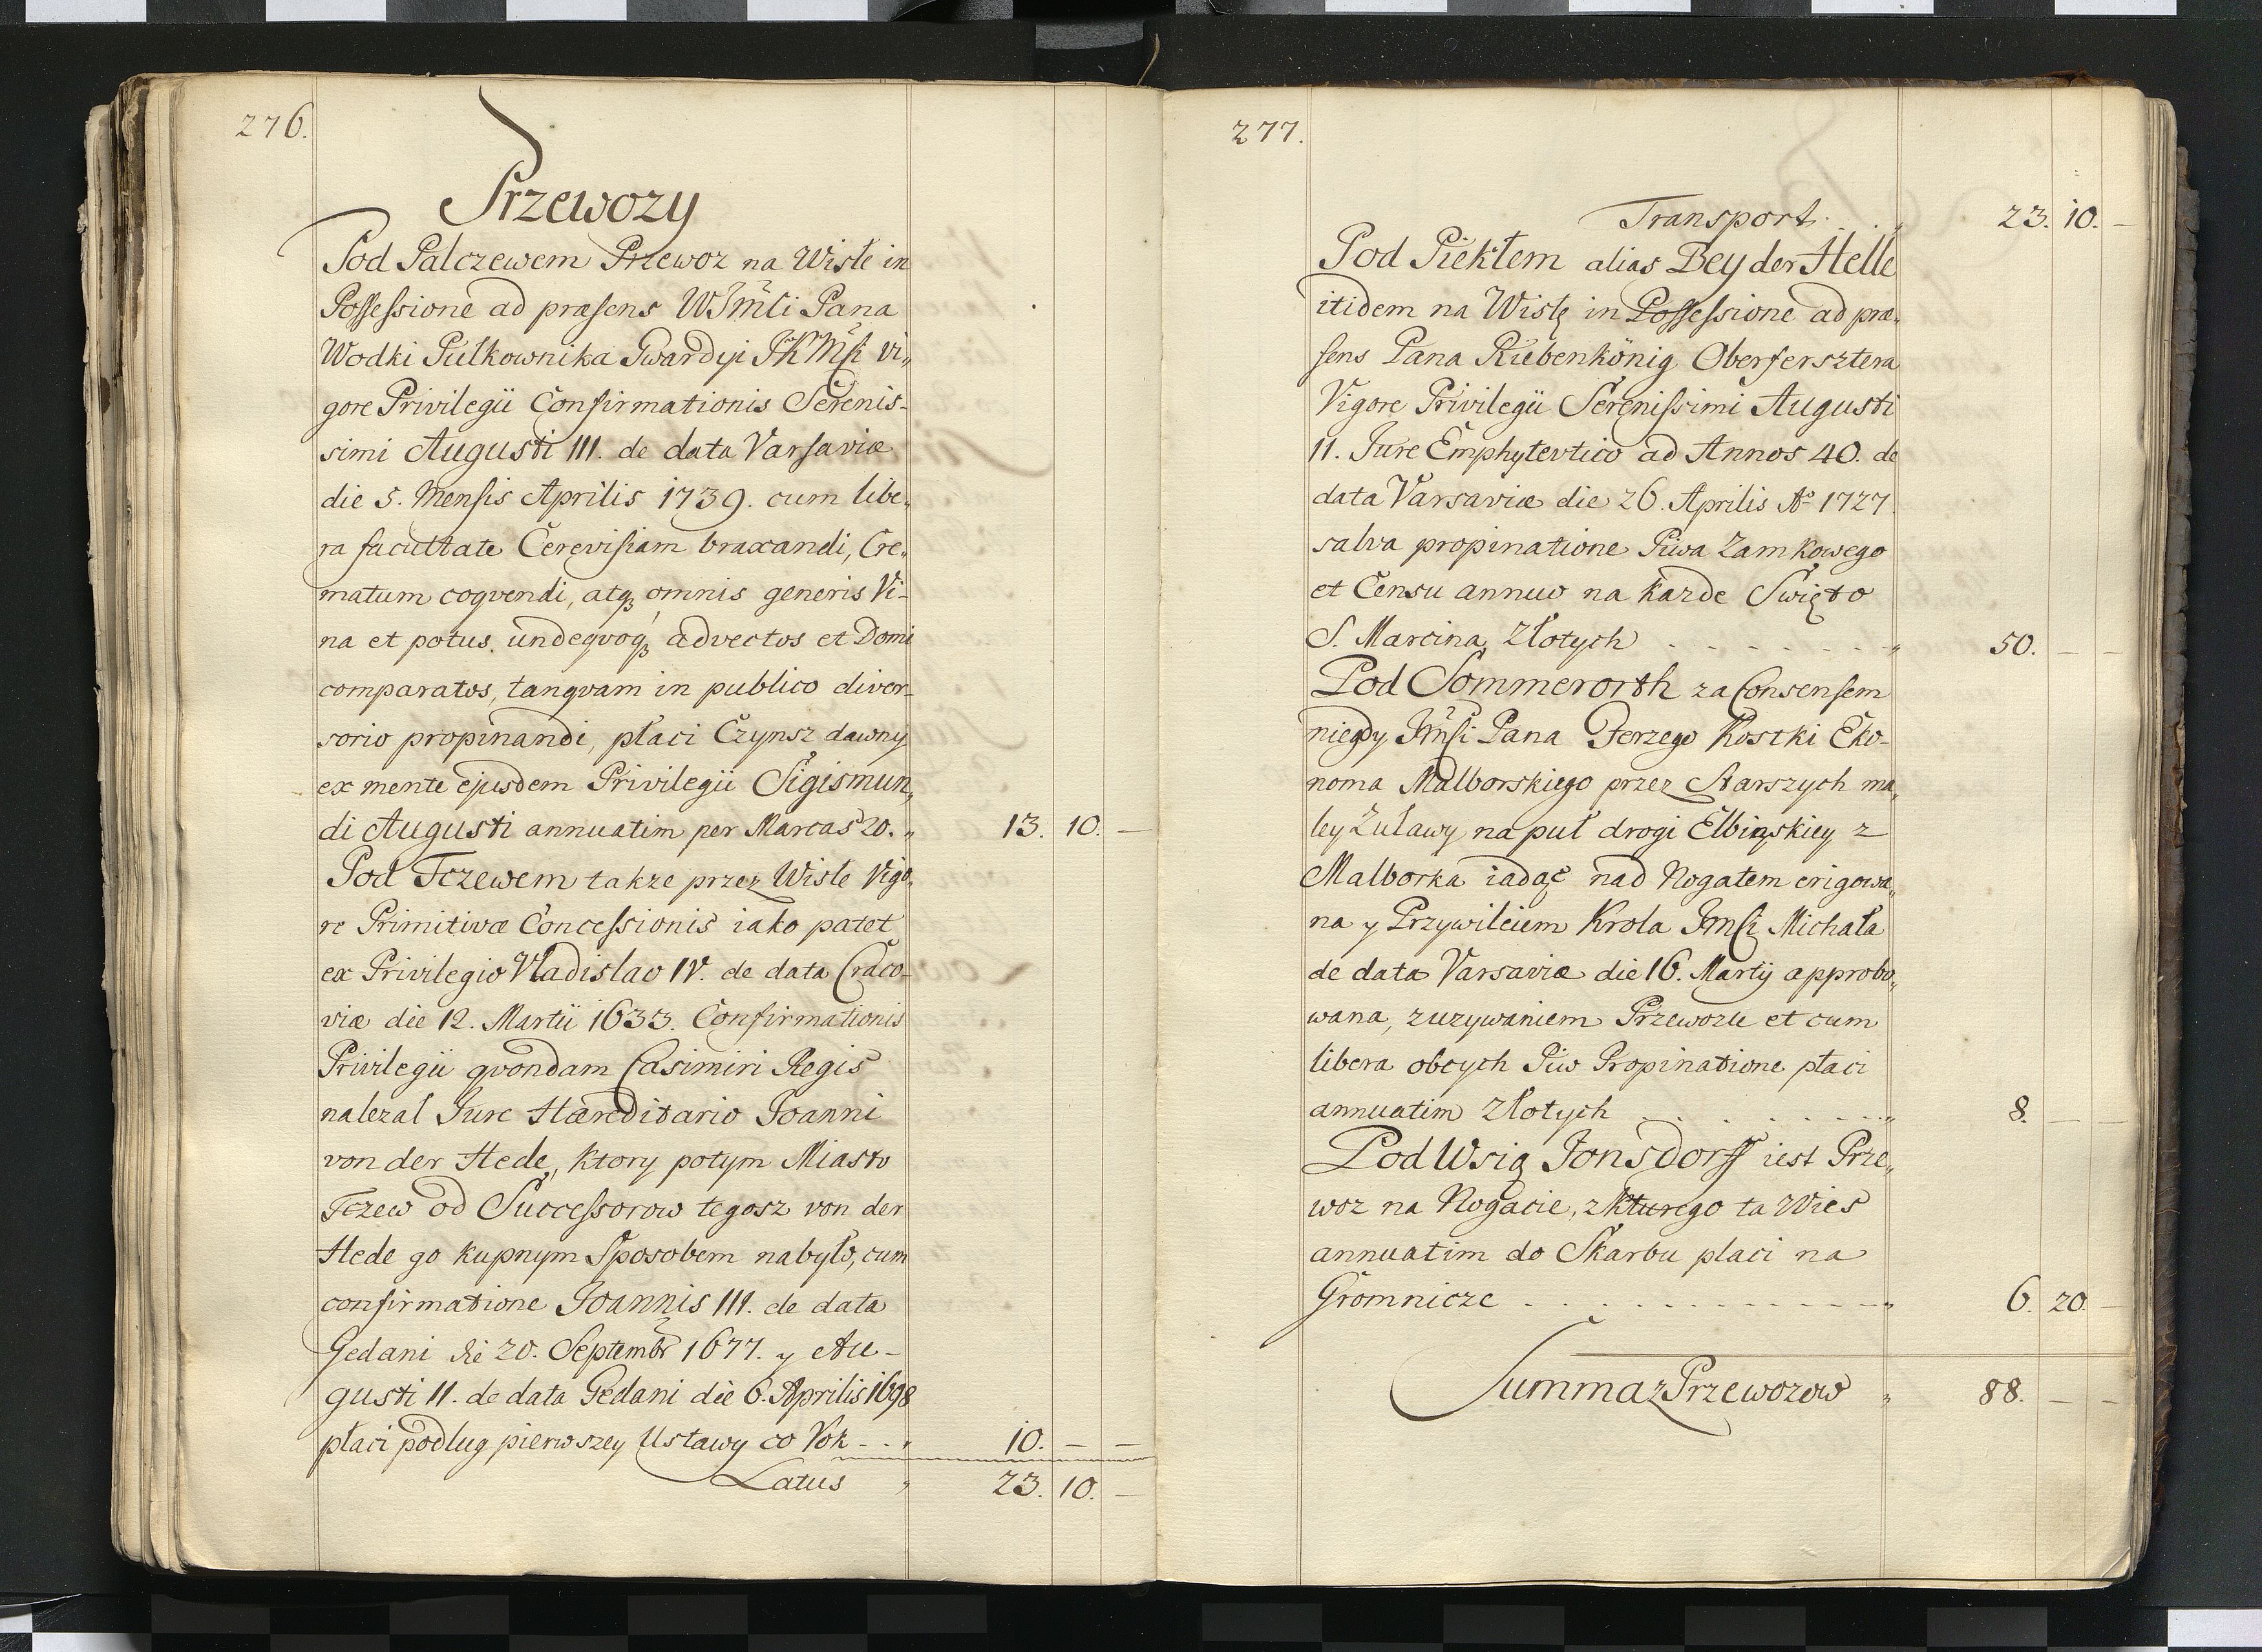 276.
Przewozy
Pod Palczewem Przewoz na Wiśle in
Possessione ad præsens WJmści Pana
Wodki Pułkownika Gwardyi JKMści Vi„
gore Privilegii Confirmationis Serenis-
simi Augusti III. de data Varsaviæ
die 5. Mensis Aprilis 1739. cum libe„
ra facultate Cerevisiam braxandi, Cre„
matum coqvendi, atq; omnis generis Vi-
na et potus undeqvoq; advectos et Domi
comparatos, tanqvam in publico diver-
sorio propinandi, płaci Czynsz dawny
ex mente ejusdem Privilegii Sigismun„
di Augusti annuatim per Marcas 20. „ 13. 10. —
Pod Tczewem takze przez Wisłe Vigo„
re Primitivæ Concessionis iako patet
ex Privilegio Vladislao IV. de data Craco-
viæ die 12. Martii 1633. Confirmationis
Privilegii qvondam Casimiri Regis
nalezał Jure Hæreditario Joanni
von der Hede, ktory potym Miasto
Tczew od Successorow tegosz von der
Hede go kupnym Sposobem nabyło, cum
confirmatione Joannis III. de data
Gedani die 20. Septembr 1677. y Au-
gusti II. de data Gedani die 6. Aprilis 1698
płaci podług pierwszey Ustawy co Rok - - „ 10. — —
Latus „ 23. 10. —
277.
Transport . . „ 23. 10. —
Pod Piekłem alias Bey der Helle
itidem na Wislę in Possessione ad præ„
sens Pana Riebenkönig Oberfersztera
Vigore Privilegii Serenissimi Augusti
II. Jure Emphytevtico ad Annos 40. de
data Varsaviæ die 26. Aprilis Ao 1727.
salva propinatione Piwa Zamkowego
et Censu annuo na kazde Swięto
S. Marcina, Złotych . - - - - - - - „ 50. — —
Pod Sommerorth za Consensem
niegdy Jmści Pana Jerzego Kostki Eko-
noma Malborskiego przez Starszych ma„
ley Żuławy na puł drogi Elbiąskiey z
Malborka iadąc nad Nogatem erigowa„
na y Przywileiem Krola Jmści Michała
de data Varsaviæ die 16. Martij approbo„
wana, zuzywaniem Przewozu et cum
libera obcych Piw Propinatione płaci
annuatim Złotych . . . . . . . . . . „ 8. — —
Pod Wsią Jonsdorff iest Prze„
woz na Nogacie, z kturego ta Wies
annuatim do Skarbu placi na
Gromnicze . . . . . . - - - - - - „ 6. 20. —
Summa z Przewozow „ 88. — —